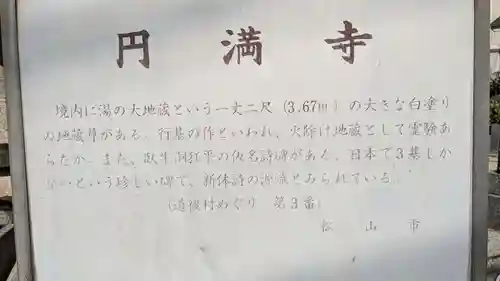 円満寺
境内に湯の大地蔵という一丈二尺（3.67m）の大きな白塗り
の地蔵尊がある。行基の作といわれ、火除け地蔵として霊験あ
らたか。また、俳生洞江平の仮名詩碑がある。日本で3基しか
ないという珍しい碑で、新体詩の源流とみられている。
（道後村めぐり　第3番）
松山市